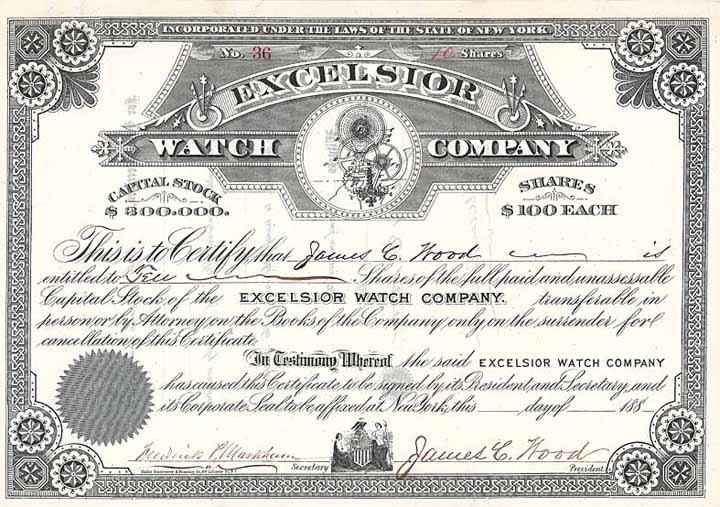 INCORPORATED UNDER THE LAWS OF THE STATE OF NEW YORK
No. 36 10 Shares
EXCELSIOR
WATCH COMPANY
CAPITAL STOCK SHARES
$300.000. $100 EACH
This is to Certify that James C. Wood is
entitled to Ten Shares of the full paid and unassessable
Capital Stock of the EXCELSIOR WATCH COMPANY. transferable in
person or by Attorney on the Books of the Company only on the surrender for
cancellation of this Certificate
In Testimony Whereof the said EXCELSIOR WATCH COMPANY
has caused this Certificate to be signed by its President, and Secretary, and
its Corporate Seal to be affixed at New York, this day of 188
Frederick Secretary James C. Wood President